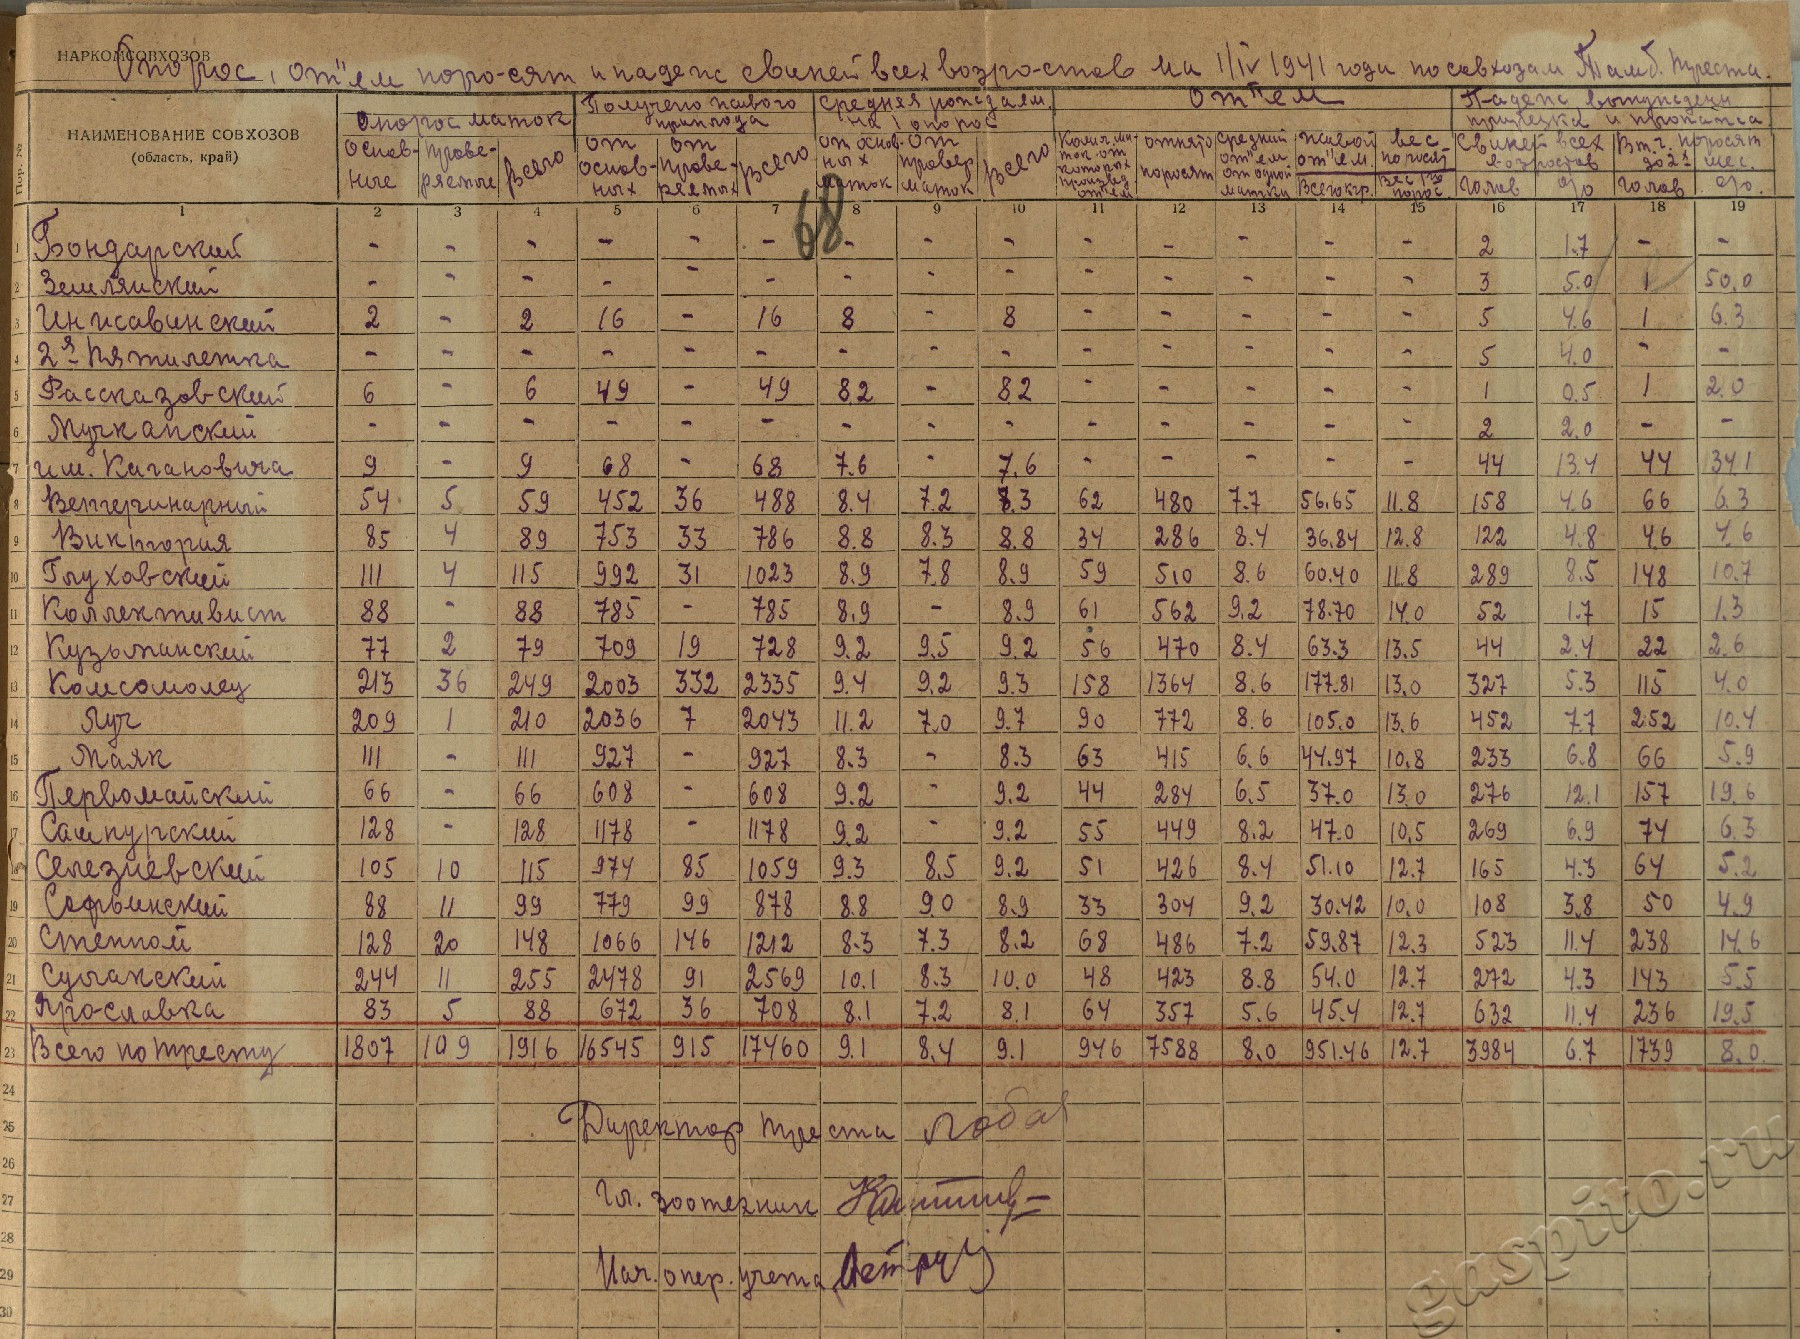 НАРКОМСОВХОЗОВ
Опорос, от"ем поро-сят и падеж свиней всех возро-стов на 1/IV 1941 года по совхозам Тамб. треста.
Пор. №
НАИМЕНОВАНИЕ СОВХОЗОВ
(область, край)
Опорос маток
Получено живого приплода
Средняя рождаем. на 1 опорос
От"ем
Падеж, вынужден
прирезка и пропажа
Основ-ные
прове-ряемые
Всего
от основ-ных
от прове-ряемых
Всего
от основ-ных маток
от провер маток
Всего
Колич. ма-ток от которых произвед от"ем
отнято поросят
Средний от"ем от одной матки
Живой вес от"ем. поросят
Всего кгр.
Вес 1го порос.
Свиней всех возростов
голов
%
В т.ч. поросят до 2х мес.
голов
%
1 2 3 4 5 6 7 8 9 10 11 12 13 14 15 16 17 18 19
68
1 Бондарский - - - - - - - - - - - - - - 2 1.7 - -
2 Землянский - - - - - - - - - - - - - - 3 5.0 1 50.0
3 Инжавинский 2 - 2 16 - 16 8 - 8 - - - - - 5 4.6 1 6.3
4 2я Пятилетка - - - - - - - - - - - - - - 5 4.0 - -
5 Рассказов-ский 6 - 6 49 - 49 8.2 - 8.2 - - - - - 1 0.5 1 2.0
6 Мучкапский - - - - - - - - - - - - - - 2 2.0 - -
7 им. Кагановича 9 - 9 68 - 68 7.6 - 7.6 - - - - - 44 13.4 44 134.1
8 Ветеринарный 54 5 59 452 36 488 8.4 7.2 8.3 62 480 7.7 56.65 11.8 158 4.6 66 6.3
9 Виктория 85 4 89 753 33 786 8.8 8.3 8.8 34 286 8.4 36.84 12.8 122 4.8 46 4.6
10 Глуховский 111 4 115 992 31 1023 8.9 7.8 8.9 59 510 8.6 60.40 11.8 289 8.5 148 10.7
11 Коллективист 88 - 88 785 - 785 8.9 - 8.9 61 562 9.2 78.70 14.0 52 1.7 15 1.3
12 Кузьминский 77 2 79 709 19 728 9.2 9.5 9.2 56 470 8.4 63.3 13.5 44 2.4 22 2.6
13 Комсомолец 213 36 249 2003 332 2335 9.4 9.2 9.3 158 1364 8.6 177.81 13.0 327 5.3 115 4.0
14 Луч 209 1 210 2036 7 2043 11.2 7.0 9.7 90 772 8.6 105.0 13.6 452 7.7 252 10.4
15 Маяк 111 - 111 927 - 927 8.3 - 8.3 63 415 6.6 44.97 10.8 233 6.8 66 5.9
16 Первомайский 66 - 66 608 - 608 9.2 - 9.2 44 284 6.5 37.0 13.0 276 12.1 157 19.6
17 Сампурский 128 - 128 1178 - 1178 9.2 - 9.2 55 449 8.2 47.0 10.5 269 6.9 74 6.3
18 Селезнев-ский 105 10 115 974 85 1059 9.3 8.5 9.2 51 426 8.4 51.10 12.7 165 4.3 64 5.2
19 Софьинский 88 11 99 779 99 878 8.8 9.0 8.9 33 304 9.2 30.42 10.0 108 3.8 50 4.9
20 Степной 128 20 148 1066 146 1212 8.3 7.3 8.2 68 486 7.2 59.87 12.3 523 11.4 238 14.6
21 Сучанский 244 11 255 2478 91 2569 10.1 8.3 10.0 48 423 8.8 54.0 12.7 272 4.3 143 5.5
22 Яро-славка 83 5 88 672 36 708 8.1 7.2 8.1 64 357 5.6 45.4 12.7 632 11.4 236 19.5
23 Всего по тресту 1807 109 1916 16545 915 17460 9.1 8.4 9.1 946 7588 8.0 951.46 12.7 3984 6.7 1739 8.0
24
25 Директор треста
26
27 Гл. зоотехник
28
29 Нач. опер. учета
30
gaspito.ru